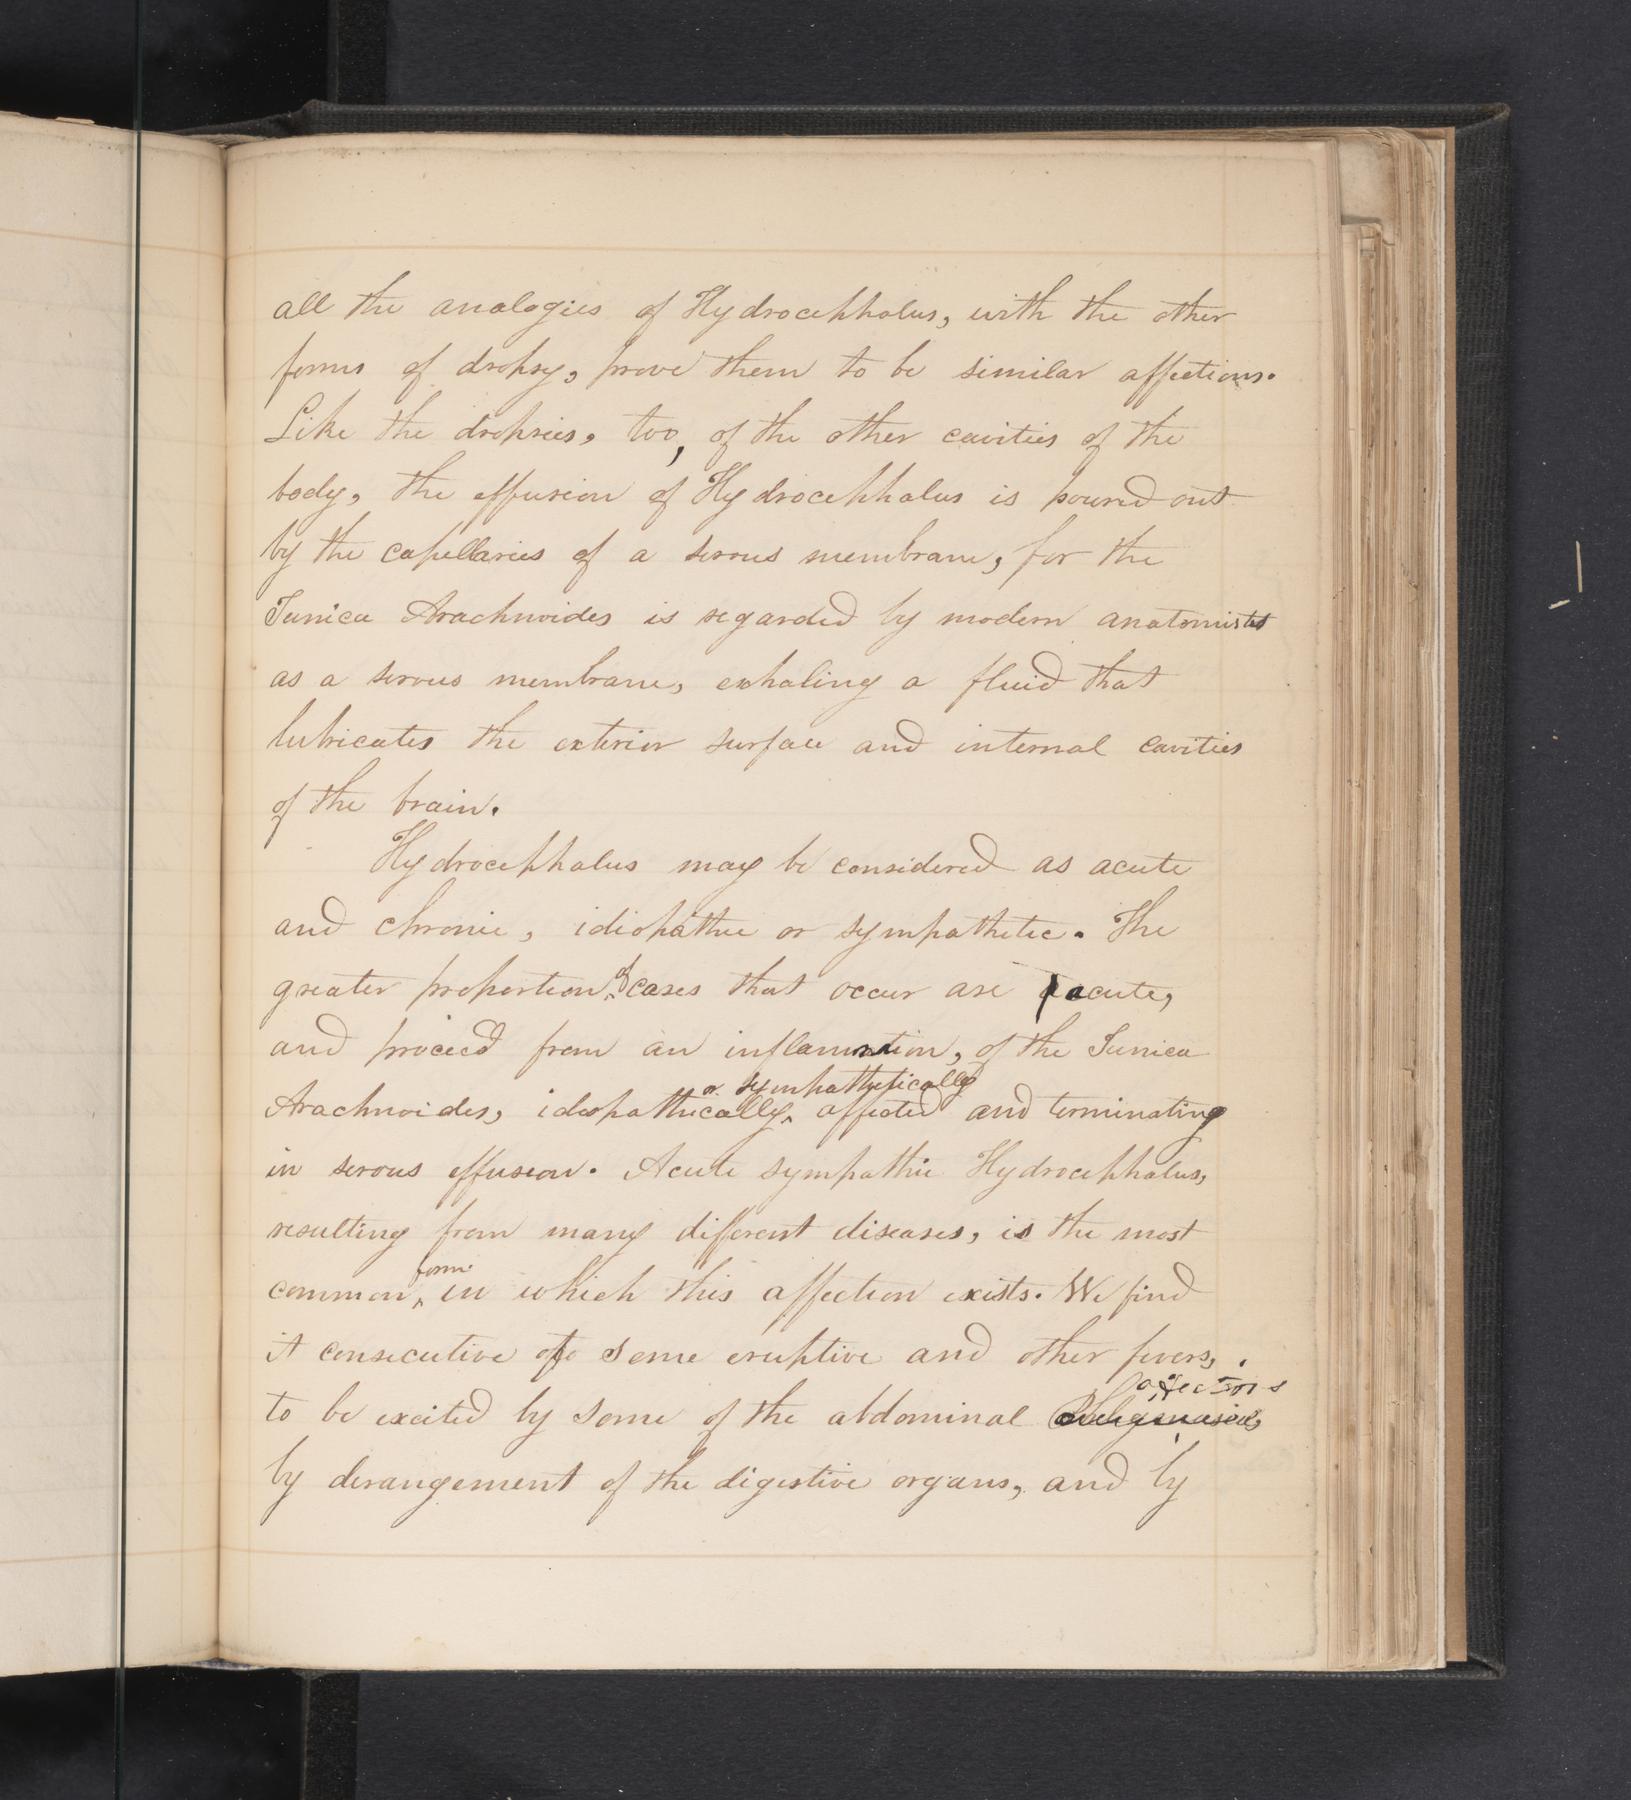 all the analogies of Hydrocephalus, with the other
forms of dropsy, prove them to be similar affections.
Like the dropsies, too, of the other cavities of the
body, the effusion of Hydrocephalus is poured out
by the capellaries of a serous membrane, for the
Tunica Arachnoides is regarded by modern anatomists
as a serous membrane, exhaling a fluid that
lubricates the exterior surface and internal cavities
of the brain.
Hydrocephalus may be considered as acute
and chronic, idiopathic or sympathetic. The
greater proportion of cases that occur are acute,
and proceed from an inflammation, of the Tunica
or sympathetically
Arachnoides, idiopathically affected and terminating
in serous effusion. Acute sympathic Hydrocephalus,
resulting from many different diseases, is the most
form
common in which this affection exists. We find
it consecutive to some eruptive and other fevers,
affections
to be excited by some of the abdominal
by derangement of the digestive organs, and by